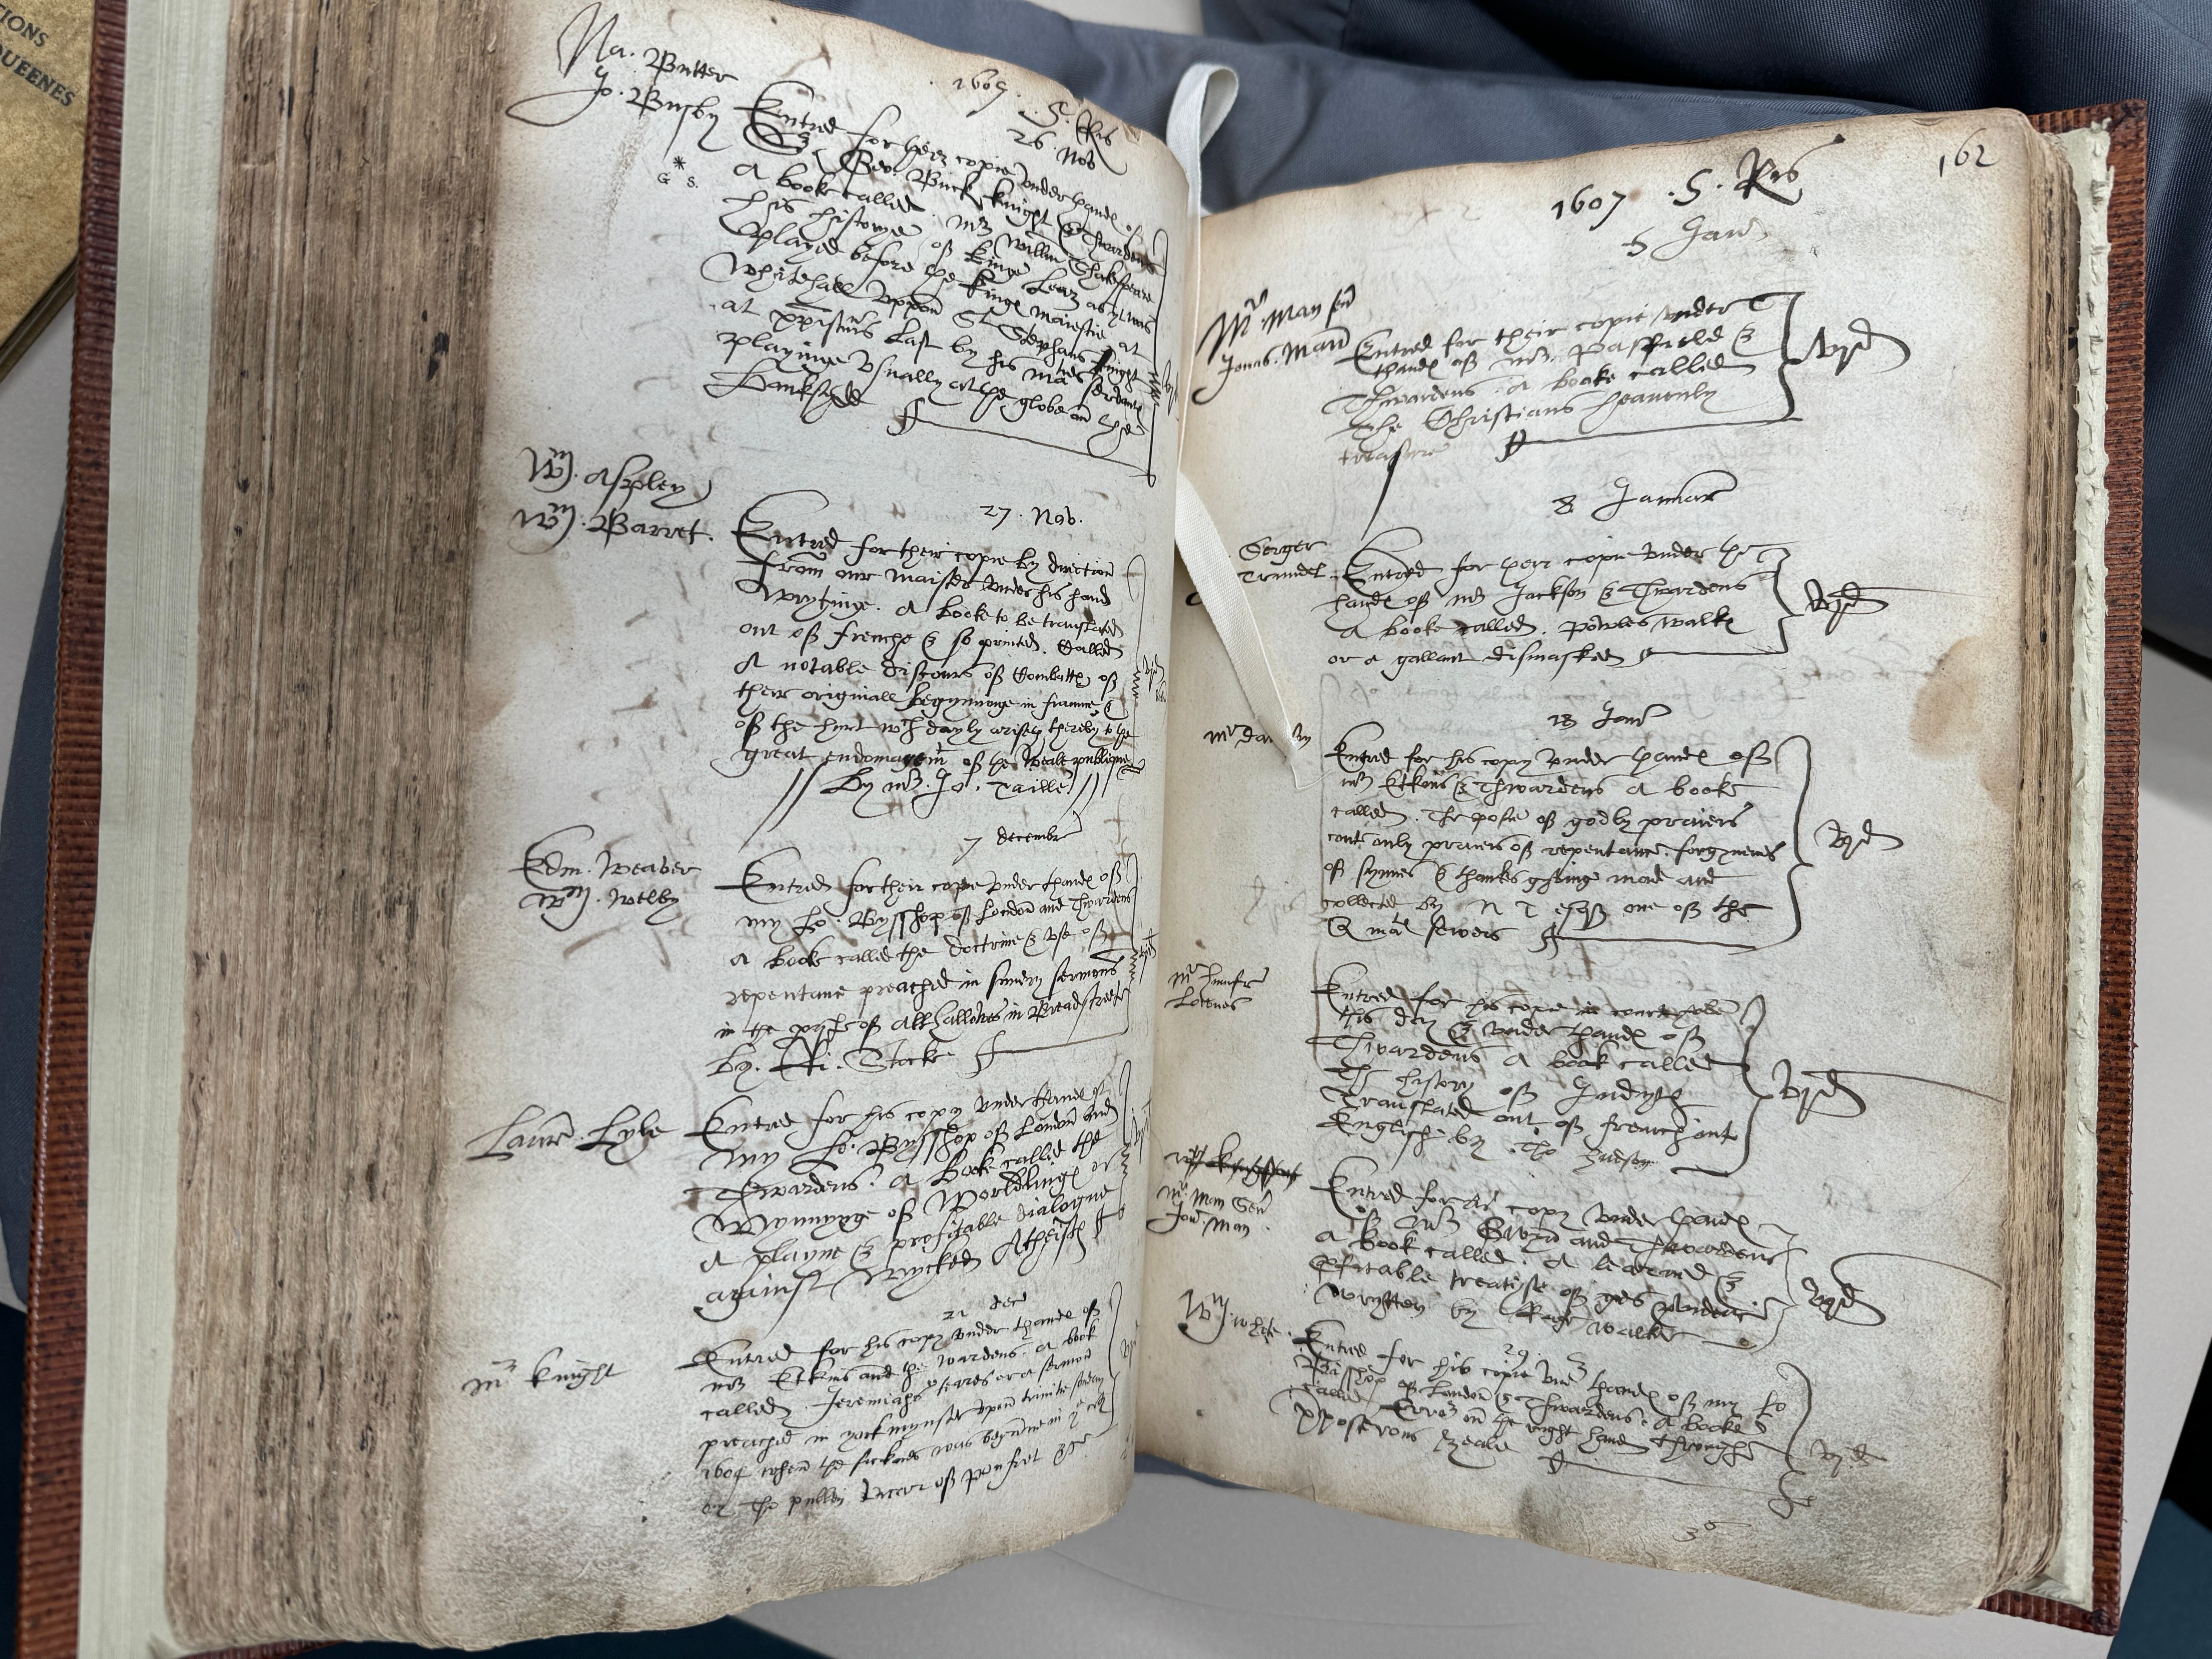 IONS
QUEENES
Na. Butter
Jo. Busby
1607. 5. Ris
26 Nov
Entred for their copie under handes of
Sr Geo. Buck knight & Thwardens
A booke called. Mr Willm Shakespeare
his historye of Kinge Lear as yt was
played before the kinges maiestie at
Whitehall vppon St Stephans night
at xpistmas Last by his maties servantes
playinge vsually at the globe on the
Banksyde
* G S.
Wm. Aspley
Wm. Barret.
27. Nov.
Entred for their copie by direction
from our maister under his hand
wrytinge. A Booke to be translated
out of frenche & so printed. Called
A notable discours of
their originall begynninge in fraunce &
of the hurt wch dayly ariseth thereby to the
great endomagemt of the weale publique
By mr. Jo. Taille
7 decembr
Edm. Weaver
Wm. Welby
Entred for their copie under thandes of
my Lo. Bysshop of London and Thwardens
A book called the doctrine & vse of
repentance preached in sundry sermons
in the pishe of Alhallowes in Breadstreete
by. Ri. Stocke
Lawr. Lyle
Entred for his copy under thandes of
my Lo. Bysshop of London and
Thwardens. A Book called the
Wynnynge of Worldlinges or
A playne & profitable dialogue
against wycked Atheistes
21 dec
mr knight
Entred for his copy under thandes of
mr Etkins and the wardens. A book
called. Jeremiahs teares or a sermon
preached in york mynster vpon trinitie sonday
1604 when the sicknes was begunne in ye city
by Tho pullen vicar of ponfret
162
1607 5. Ris
5 Janr
Mr. Man sen
Jonas. Man
Entred for their copie under
thandes of mr. Pasfield &
Thwardens. A booke called
The Christians heavenly
treasure
vjd
8 Januar
Seiger
Trundel.
Entred for yeir copie under the
handes of mr Jackson & Thwardens
A booke called. Powles walkes
or a gallant dismasked
vjd
18 Janr
mr dawson
Entred for his copy under handes of
mr Etkins & Thwardens A booke
called. The posie of godly praiers
cont only praiers of repentance. forgyvenes
of synnes & thanks gyvinge made and
collected by N T esqr one of the
Q mates sewers
vjd
mr humfr
Lownes
Entred for his copie in court
this day & under thandes of
Thwardens A book called
Th history of Judyth
Translated out of french into
English by. Tho Hudson
vjd
mr. Man Senr
Jon. Man.
Entred for copy under handes
of mr and Thwardens
A book called. A learned &
pfitable treatise of gods
wrytten by Raph Walker
vjd
Wm. white.
29.
Entred for his copie under thandes of my Lo
Bisshop of London & Thwardens. A booke
called Error on the right hand through
pposterous zeale
vjd